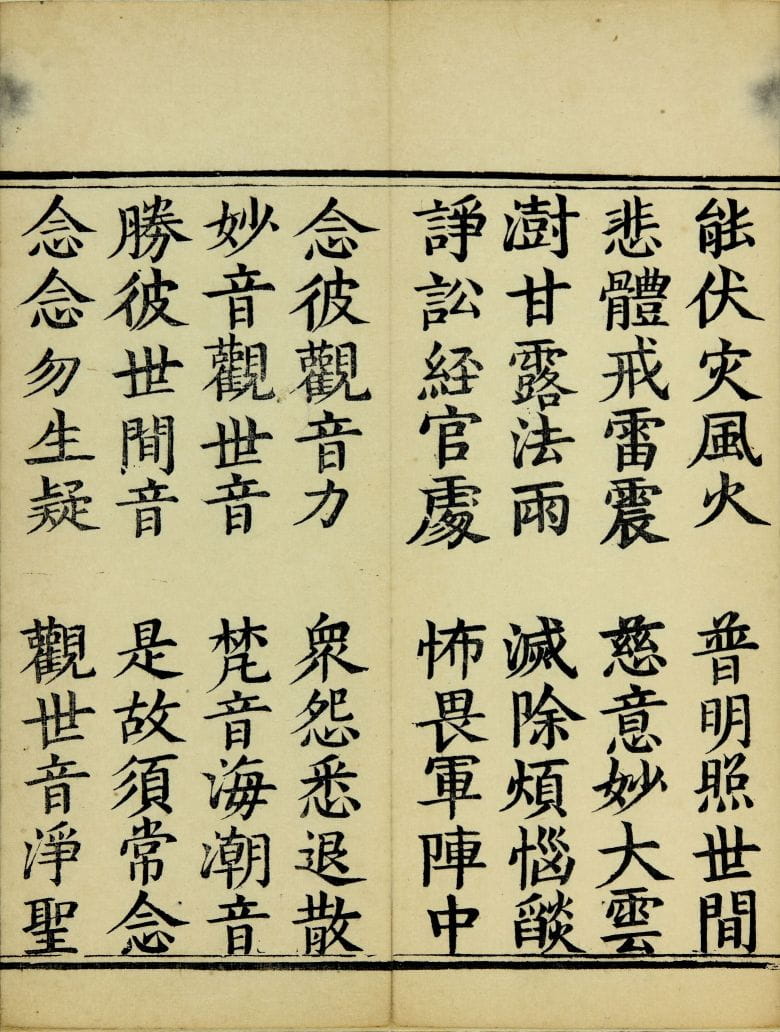 能伏灾風火　普明照世間
悲體戒雷震　慈意妙大雲
澍甘露法雨　滅除煩惱𦦨
諍訟経官處　怖畏軍陣中
念彼觀音力　衆怨悉退散
妙音觀世音　梵音海潮音
勝彼世間音　是故須常念
念念勿生疑　觀世音淨聖